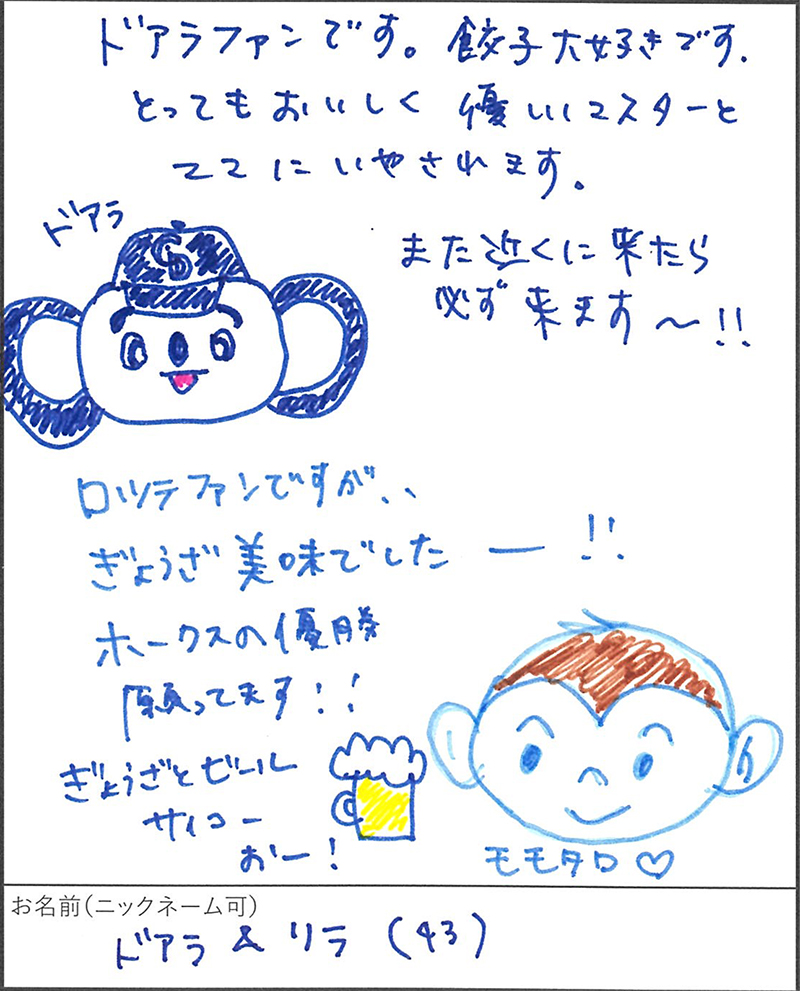 ドアラファンです。餃子大好きです.
とってもおいしく 優しいマスターと
ママにいやされます。
ドアラ
CD
また近くに来たら
必ず来ます〜!!
ロッテファンですが、、
ぎょうざ美味でしたー!!
ホークスの優勝
願ってます!!
ぎょうざとビール
サイコー
おー!
モモタロ♡
お名前(ニックネーム可)
ドアラ & リラ (43)